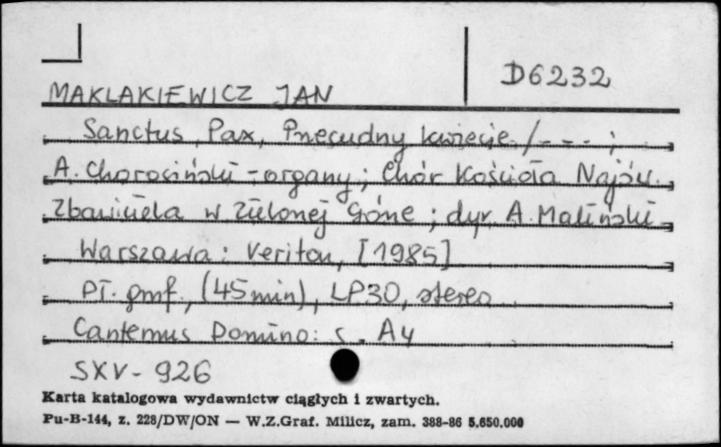 D6232
MAKLAKIEWICZ JAN
Sanctus, Pax, Przecudny kwiecie. / - - - ;
A. Chorosiński - organy; Chór Kościoła Najśw.
Zbawiciela w Zielonej Górze; dyr. A. Maliński
Warszawa: Veriton, [1985]
Pł. gmf., (45 min), LP30, stereo
Cantemus Domino: s. A4
SXV-926
Karta katalogowa wydawnictw ciągłych i zwartych.
Pu-B-144, z. 228/DW/ON — W.Z.Graf. Milicz, zam. 388-86 5.650.000